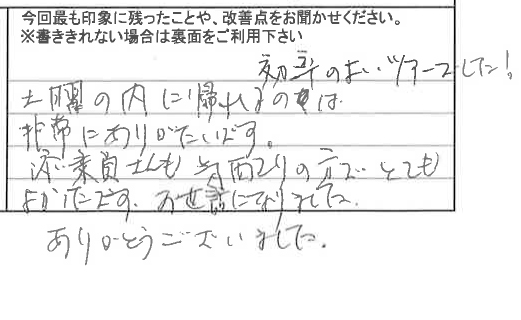 今回最も印象に残ったことや、改善点をお聞かせください。
※書ききれない場合は裏面をご利用下さい
効率のよいツアーでした!
土曜の内に帰れるのは
非常にありがたいです。
添乗員さんも気配りの方でとても
よかったです。お世話になりました。
ありがとうございました。